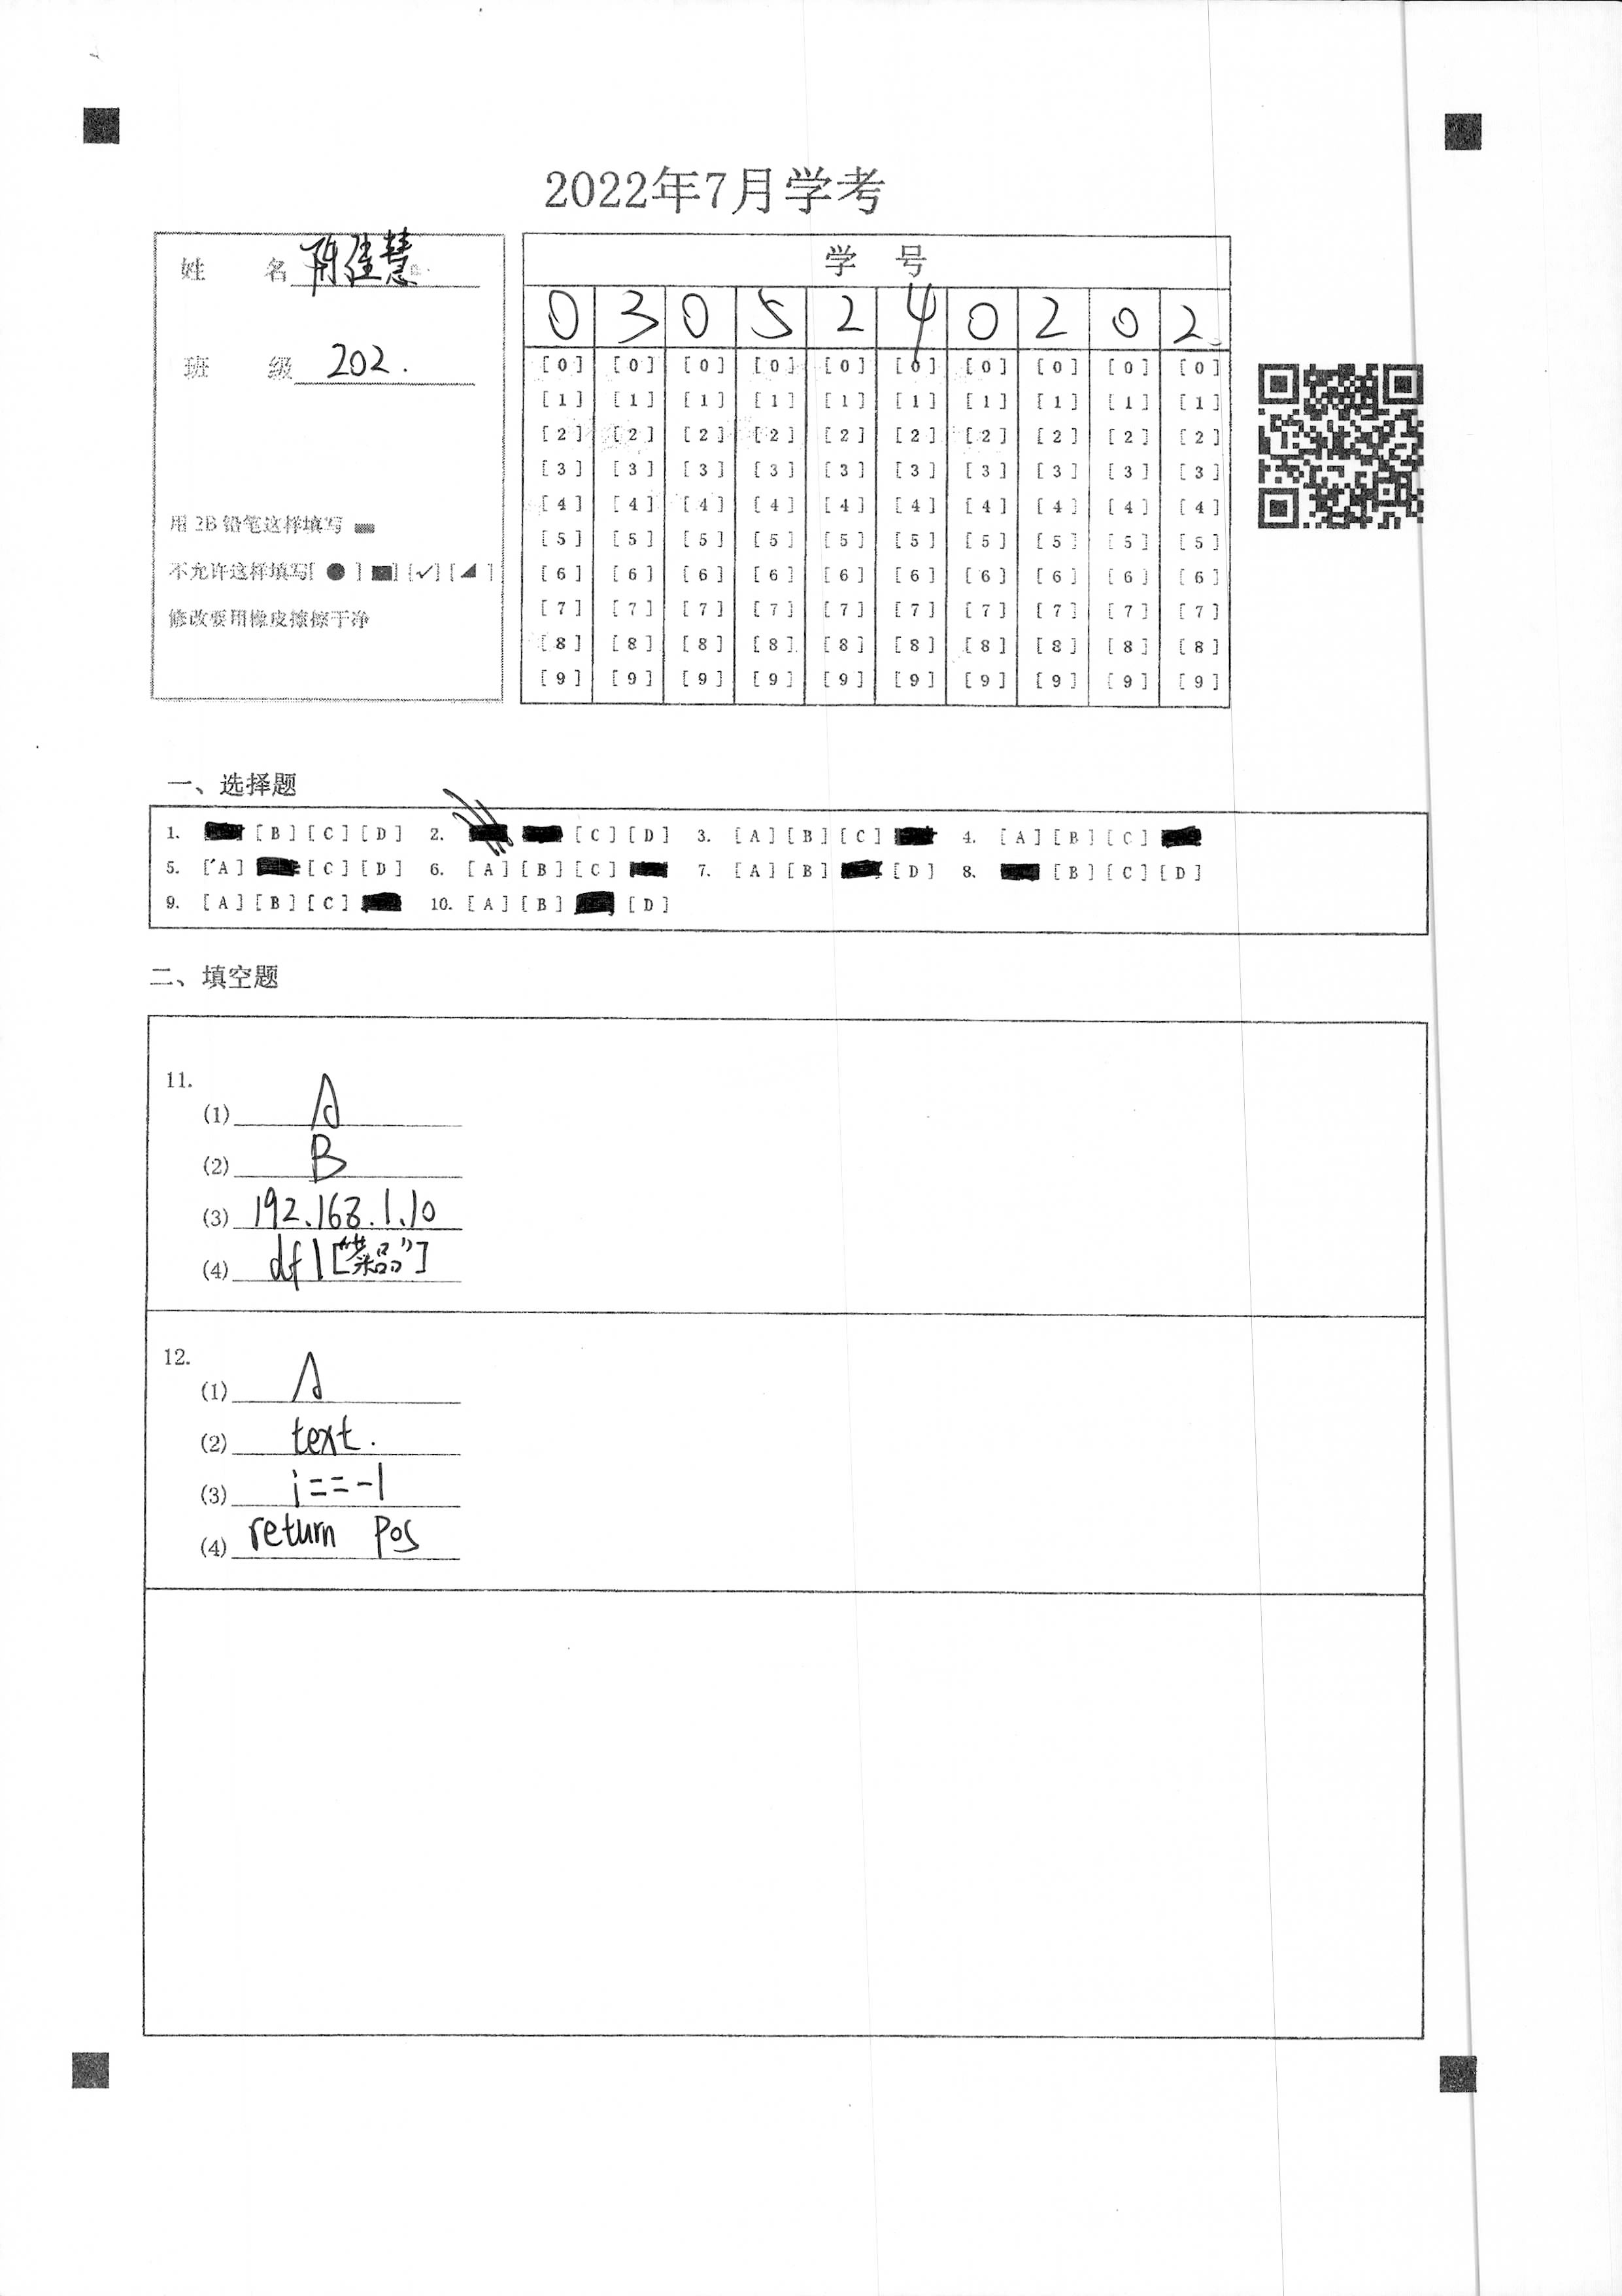 2022年7月学考
姓 名 陈佳慧
班 级 202.
用 2B 铅笔这样填写
不允许这样填写[ ● ] [■] [✓] [◢ ]
修改要用橡皮擦擦干净
学 号
0 3 0 5 2 4 0 2 0 2.
[0] [0] [0] [0] [0] [0] [0] [0] [0] [0]
[1] [1] [1] [1] [1] [1] [1] [1] [1] [1]
[2] [2] [2] [2] [2] [2] [2] [2] [2] [2]
[3] [3] [3] [3] [3] [3] [3] [3] [3] [3]
[4] [4] [4] [4] [4] [4] [4] [4] [4] [4]
[5] [5] [5] [5] [5] [5] [5] [5] [5] [5]
[6] [6] [6] [6] [6] [6] [6] [6] [6] [6]
[7] [7] [7] [7] [7] [7] [7] [7] [7] [7]
[8] [8] [8] [8] [8] [8] [8] [8] [8] [8]
[9] [9] [9] [9] [9] [9] [9] [9] [9] [9]
一、选择题
1. [B] [C] [D] 2. [C] [D] 3. [A] [B] [C] 4. [A] [B] [C]
5. [A] [C] [D] 6. [A] [B] [C] 7. [A] [B] [D] 8. [B] [C] [D]
9. [A] [B] [C] 10. [A] [B] [D]
二、填空题
11.
(1) A
(2) B
(3) 192.168.1.10
(4) df1["菜品"]
12.
(1) A
(2) text.
(3) i==-1
(4) return pos